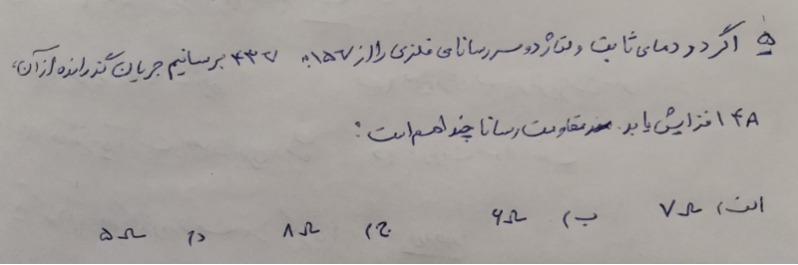 ۵ اگر در دمای ثابت ولتاژ دو سر رسانای فلزی را از ۱۵۷ به ۴۳۷ برسانیم جریان گذرانده از آن،
۱۴A افزایش یابد. مقاومت رسانا چند اهم است:
الف) ۷Ω ب) ۶Ω ج) ۸Ω د) ۵Ω